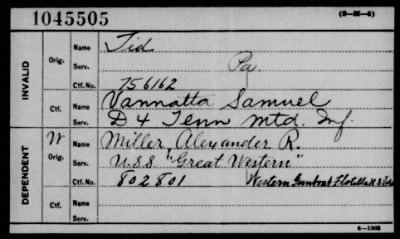 1045505 (3-M-4)
INVALID
Orig. Name
Serv. Pa.
Ctf. No. 756162
Ctf. Name Vannatta Samuel
Serv. D 4 Tenn Mtd. Inf.
DEPENDENT
W Orig. Name Miller, Alexander R.
Serv. U.S.S "Great Western"
Ctf. No. 802801 Western Gunboat Flotilla
Ctf. Name
Serv.
6-1302